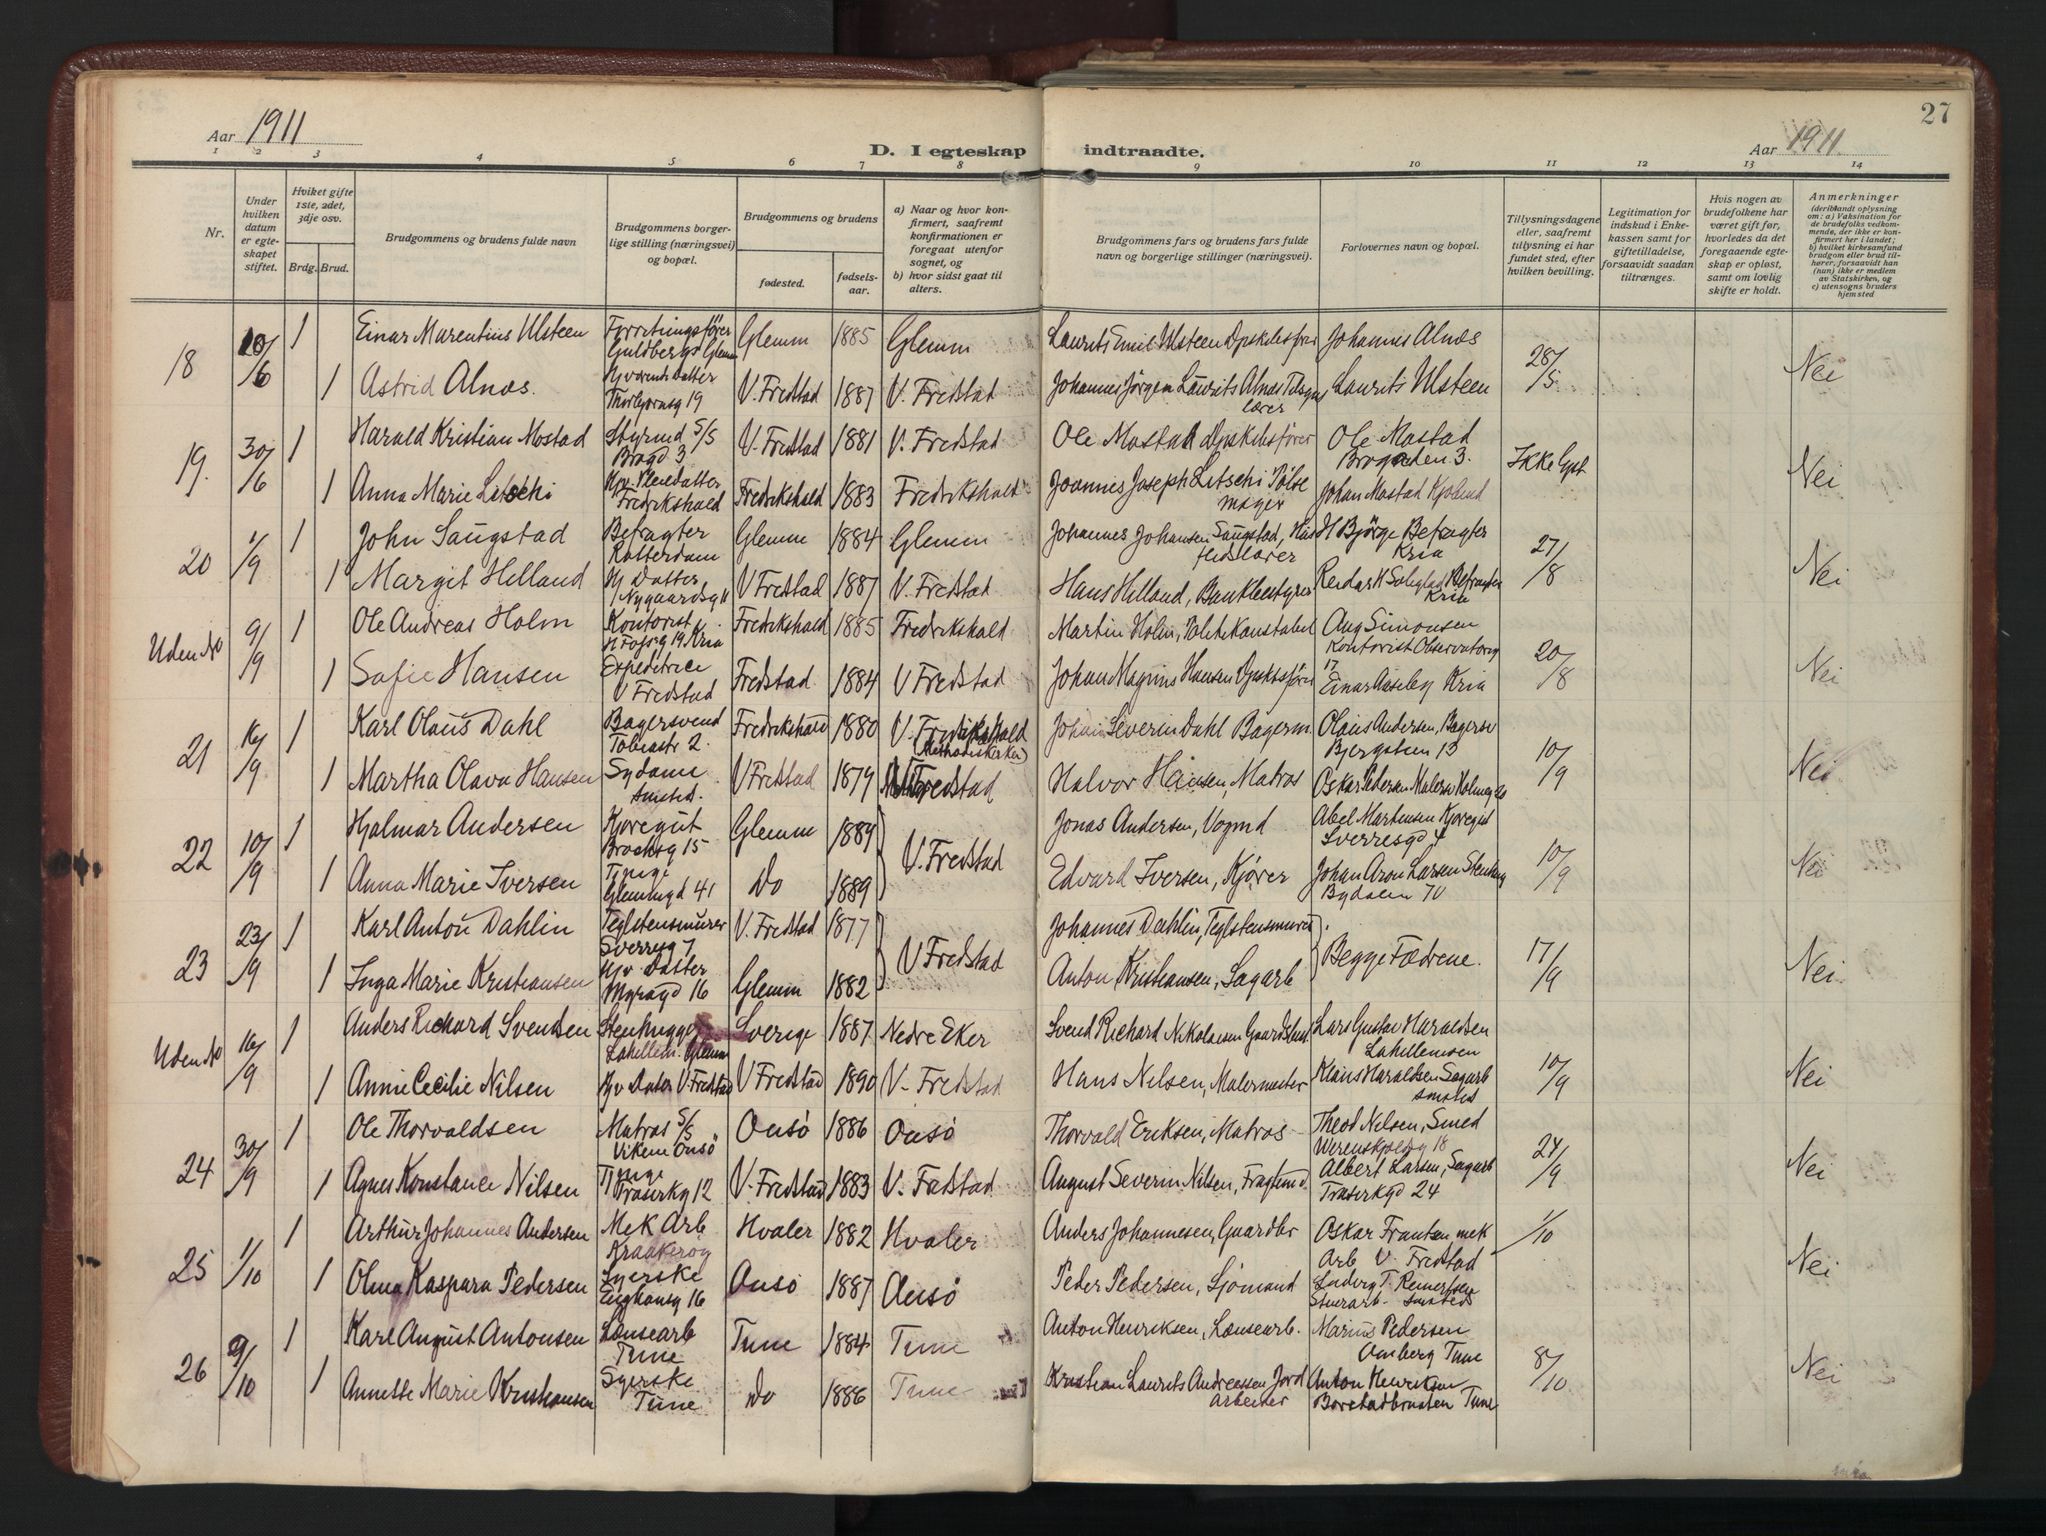 27
Aar 1911
D. I egteskap indtraadte.
Aar 1911
1 2 3 4 5 6 7 8 9 10 11 12 13 14
Nr.
Under hvilken datum er egteskapet stiftet.
Hviket gifte 1ste, 2det, 3dje osv.
Brdg. Brud.
Brudgommens og brudens fulde navn
Brudgommens borgerlige stilling (næringsvei) og bopæl.
Brudgommens og brudens
fødested.
fødselsaar.
a) Naar og hvor konfirmert, saafremt konfirmationen er foregaat utenfor sognet, og
b) hvor sidst gaat til alters.
Brudgommens fars og brudens fars fulde navn og borgerlige stillinger (næringsvei).
Forlovernes navn og bopæl.
Tillysningsdagene eller, saafremt tillysning ei har fundet sted, efter hvilken bevilling.
Legitimation for indskud i Enkekassen samt for giftetilladelse, forsaavidt saadan tiltrænges.
Hvis nogen av brudefolkene har været gift før, hvorledes da det foregaaende egteskap er opløst, samt om lovlig skifte er holdt.
Anmerkninger
(deriblandt oplysning om: a) Vaksination for de brudefolks vedkommende, der ikke er konfirmert her i landet; b) hvilket kirkesamfund brudgom eller brud tilhører, forsaavidt han (hun) ikke er medlem av Statskirken, og c) utensogns bruders hjemsted
18 10/6 1 Einar Marentius Ulsteen Forretningsfører Guldbergs Glem Glemm 1885 Glemm Laurits Emil Ulsteen Dpskibsfører Johannes Alnæs 28/5 Nei
1 Astrid Alnæs. Hjværende Datter Thorbjørnsg 19 V. Fredstad 1887 V. Fredstad Johannes Jörgen Laurits Alnæs lærer Laurits Ulsteen
19. 30/6 1 Harald Kristian Mostad Styrmd S/S Brogd 3 V. Fredstad 1881 V. Fredstad Ole Mostad Dpskibsfører Ole Mostad Brogaden 3. Ikke lyst Nei
1 Anna Marie Litschi Hjv. Pleiedatter Fredrikshald Fredrikshald 1883 Fredrikshald Joannes Joseph Litschi Pölsemager Johan Mostad
20 1/9 1 John Saugstad Befragter Rotterdam Glemm 1884 Glemm Johannes Johansen Saugstad, H Bjørge Befragter Kria 27/8 Nei
1 Margit Helland Hj Datter Nygaardsg V Fredstad 1887 V. Fredstad Hans Helland, Bankbestyrer Reidar Befragter Kria
Uden No 9/9 1 Ole Andreas Holm Kontorist 19 Kria Fredrikshald 1885 Fredrikshald Martin Holm, Politikonstabel Aug Simonsen Kontorist Observatorieg 17 20/8 Nei
1 Sofie Hansen Expeditrice V Fredstad Fredstad 1884 V Fredstad Johan Magnus Hansen Dpskibsfører Einar Aaseby Kria
21 16/9 1 Karl Olaus Dahl Bagersvend Tobiastr 2. Fredrikshald 1880 V. Fredrikshald (Methodistkirken) Johan Severin Dahl Bagerm. Olaus Andersen, Bagersv Bjergstien 13 10/9 Nei
1 Martha Olava Hansen Sydame smsted. V Fredstad 1879 Fredstad Halvor Hansen, Matros Oskar Pedersen Malersv
22 10/9 1 Hjalmar Andersen Kjøregut Brochsg 15 Glemm 1889 V. Fredstad Jonas Andersen, Vogmd Abel Martensen Kjøregut Sverresgd 4 10/9 Nei
1 Anna Marie Iversen Pige Glemmgd 41 Do 1889 Edvard Iversen, Kjører Johan Aron Larsen Bydalen 70
23 23/9 1 Karl Anton Dahlin Teglstensmurer Sverresg 7 V. Fredstad 1877 V Fredstad Johannes Dahlin, Teglstensmurer Begge Fædrene. 17/9 Nei
1 Inga Marie Kristiansen Hjv Datter Myragd 16 Glemm 1882 Anton Kristiansen, Sagarb
Uden No 16/9 1 Anders Richard Svendsen Stenhugger Lahellem. Glemm Sverige 1887 Nedre Eker Svend Richard Nikolaisen Lars Gustav Haraldsen Lahellemoen 10/9 Nei
1 Annie Cecilie Nilsen Hjv Dater V. Fredstad V Fredstad 1890 V. Fredstad Hans Nilsen, Malermester Klaus Haraldsen Sagarb smsted
24 30/9 1 Ole Thorvaldsen Matros S/S Viken Onsö Onsö 1886 Onsö Thorvald Eriksen, Matros Theod Nilsen, Smed Werenskjoldsg 18 24/9 Nei
1 Agnes Konstance Nilsen Pige Traserkg 12 V. Fredstad 1883 V. Fredstad August Severin Nilsen, Albert Larsen, Sagarb Traserkgd 24
25 1/10 1 Arthur Johannes Andersen Mek Arb Kraakerøy Hvaler 1882 Hvaler Anders Johannesen, Gaardbr Oskar Frantsen mek Arb V. Fredstad 1/10 Nei
1 Olma Kaspara Pedersen Syerske 16 Onsö 1887 Onsö Peder Pedersen, Sjömand Ludvig T. Reinertsen smsteds
26 9/10 1 Karl August Antonsen Lænsearb Tune Tune 1884 Tune Anton Henriksen, Lænsearb. Marius Pedersen Omberg Tune 8/10 Nei
1 Annette Marie Kristiansen Syerske Tune Do 1886 Tune Kristian Laurits Andreassen Jord Arbeider Anton Henriksen Tune